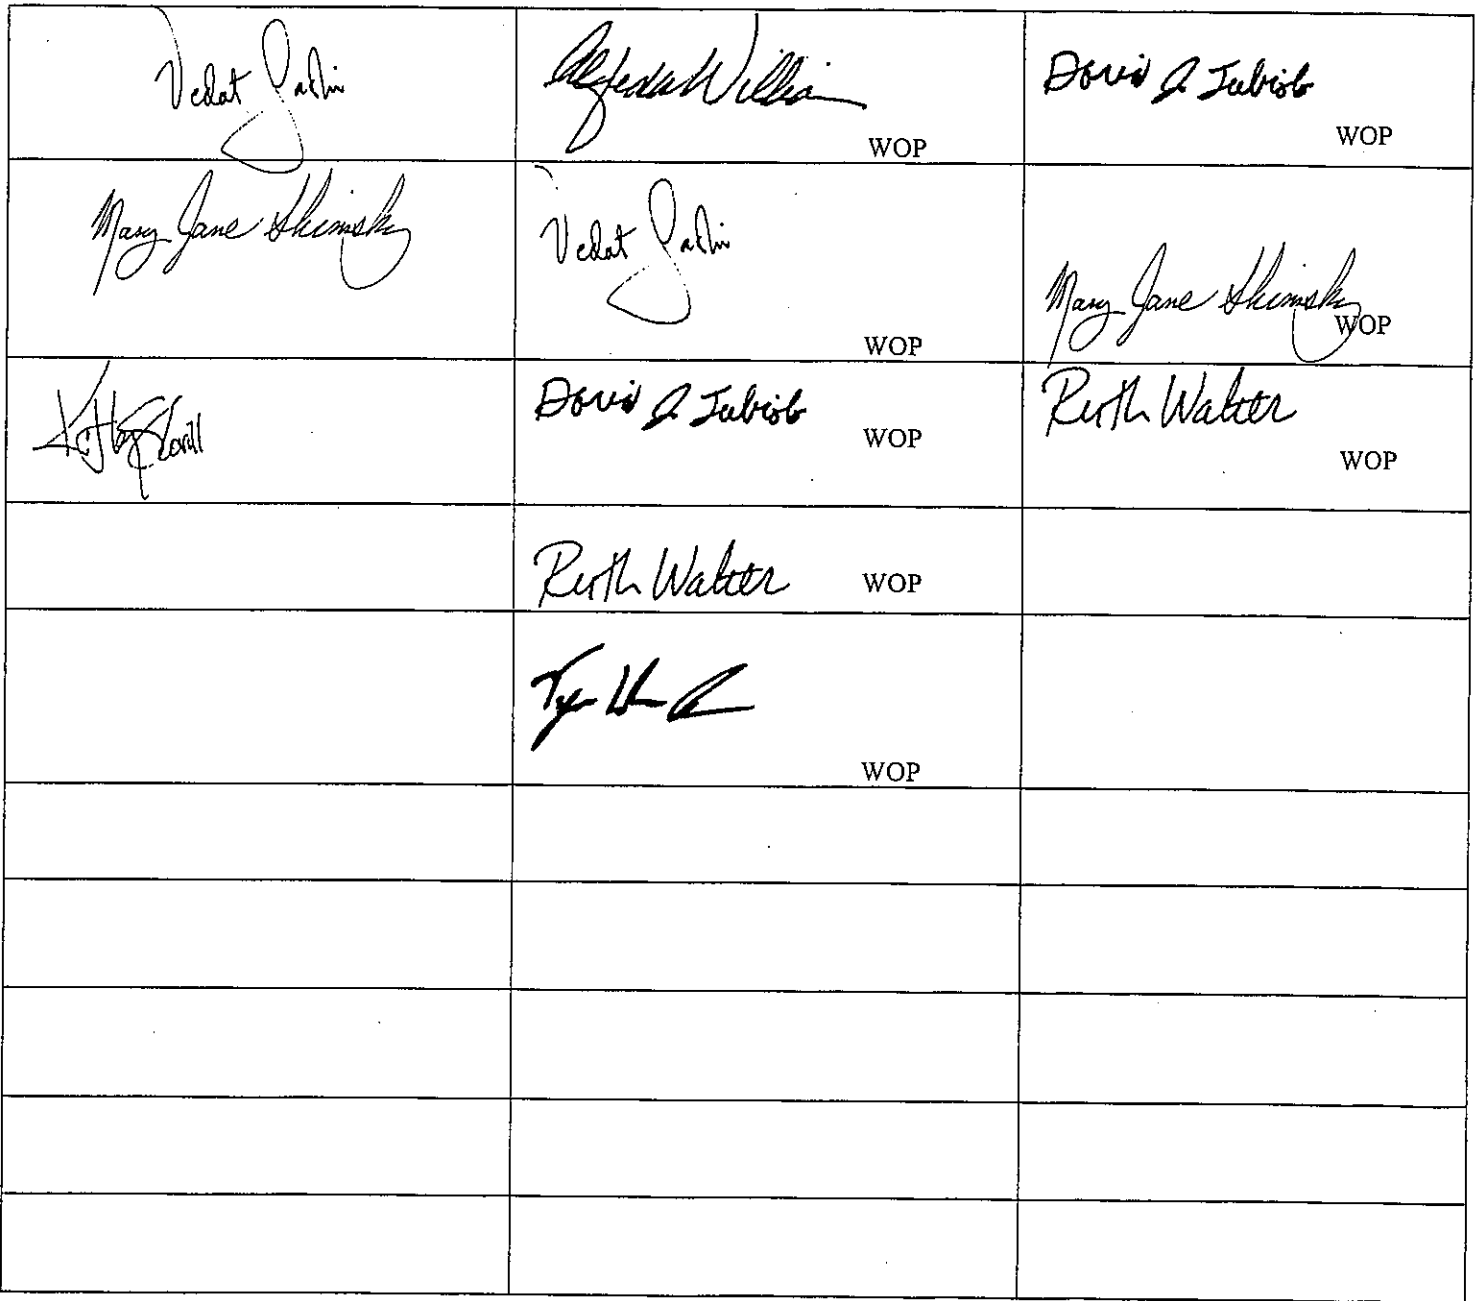 Vedat
Alfreda Williams
WOP
David J. Tubiolo
WOP
Mary Jane Shimsky
Vedat
WOP
Mary Jane Shimsky
WOP
David J. Tubiolo
WOP
Ruth Walter
WOP
Ruth Walter
WOP
WOP